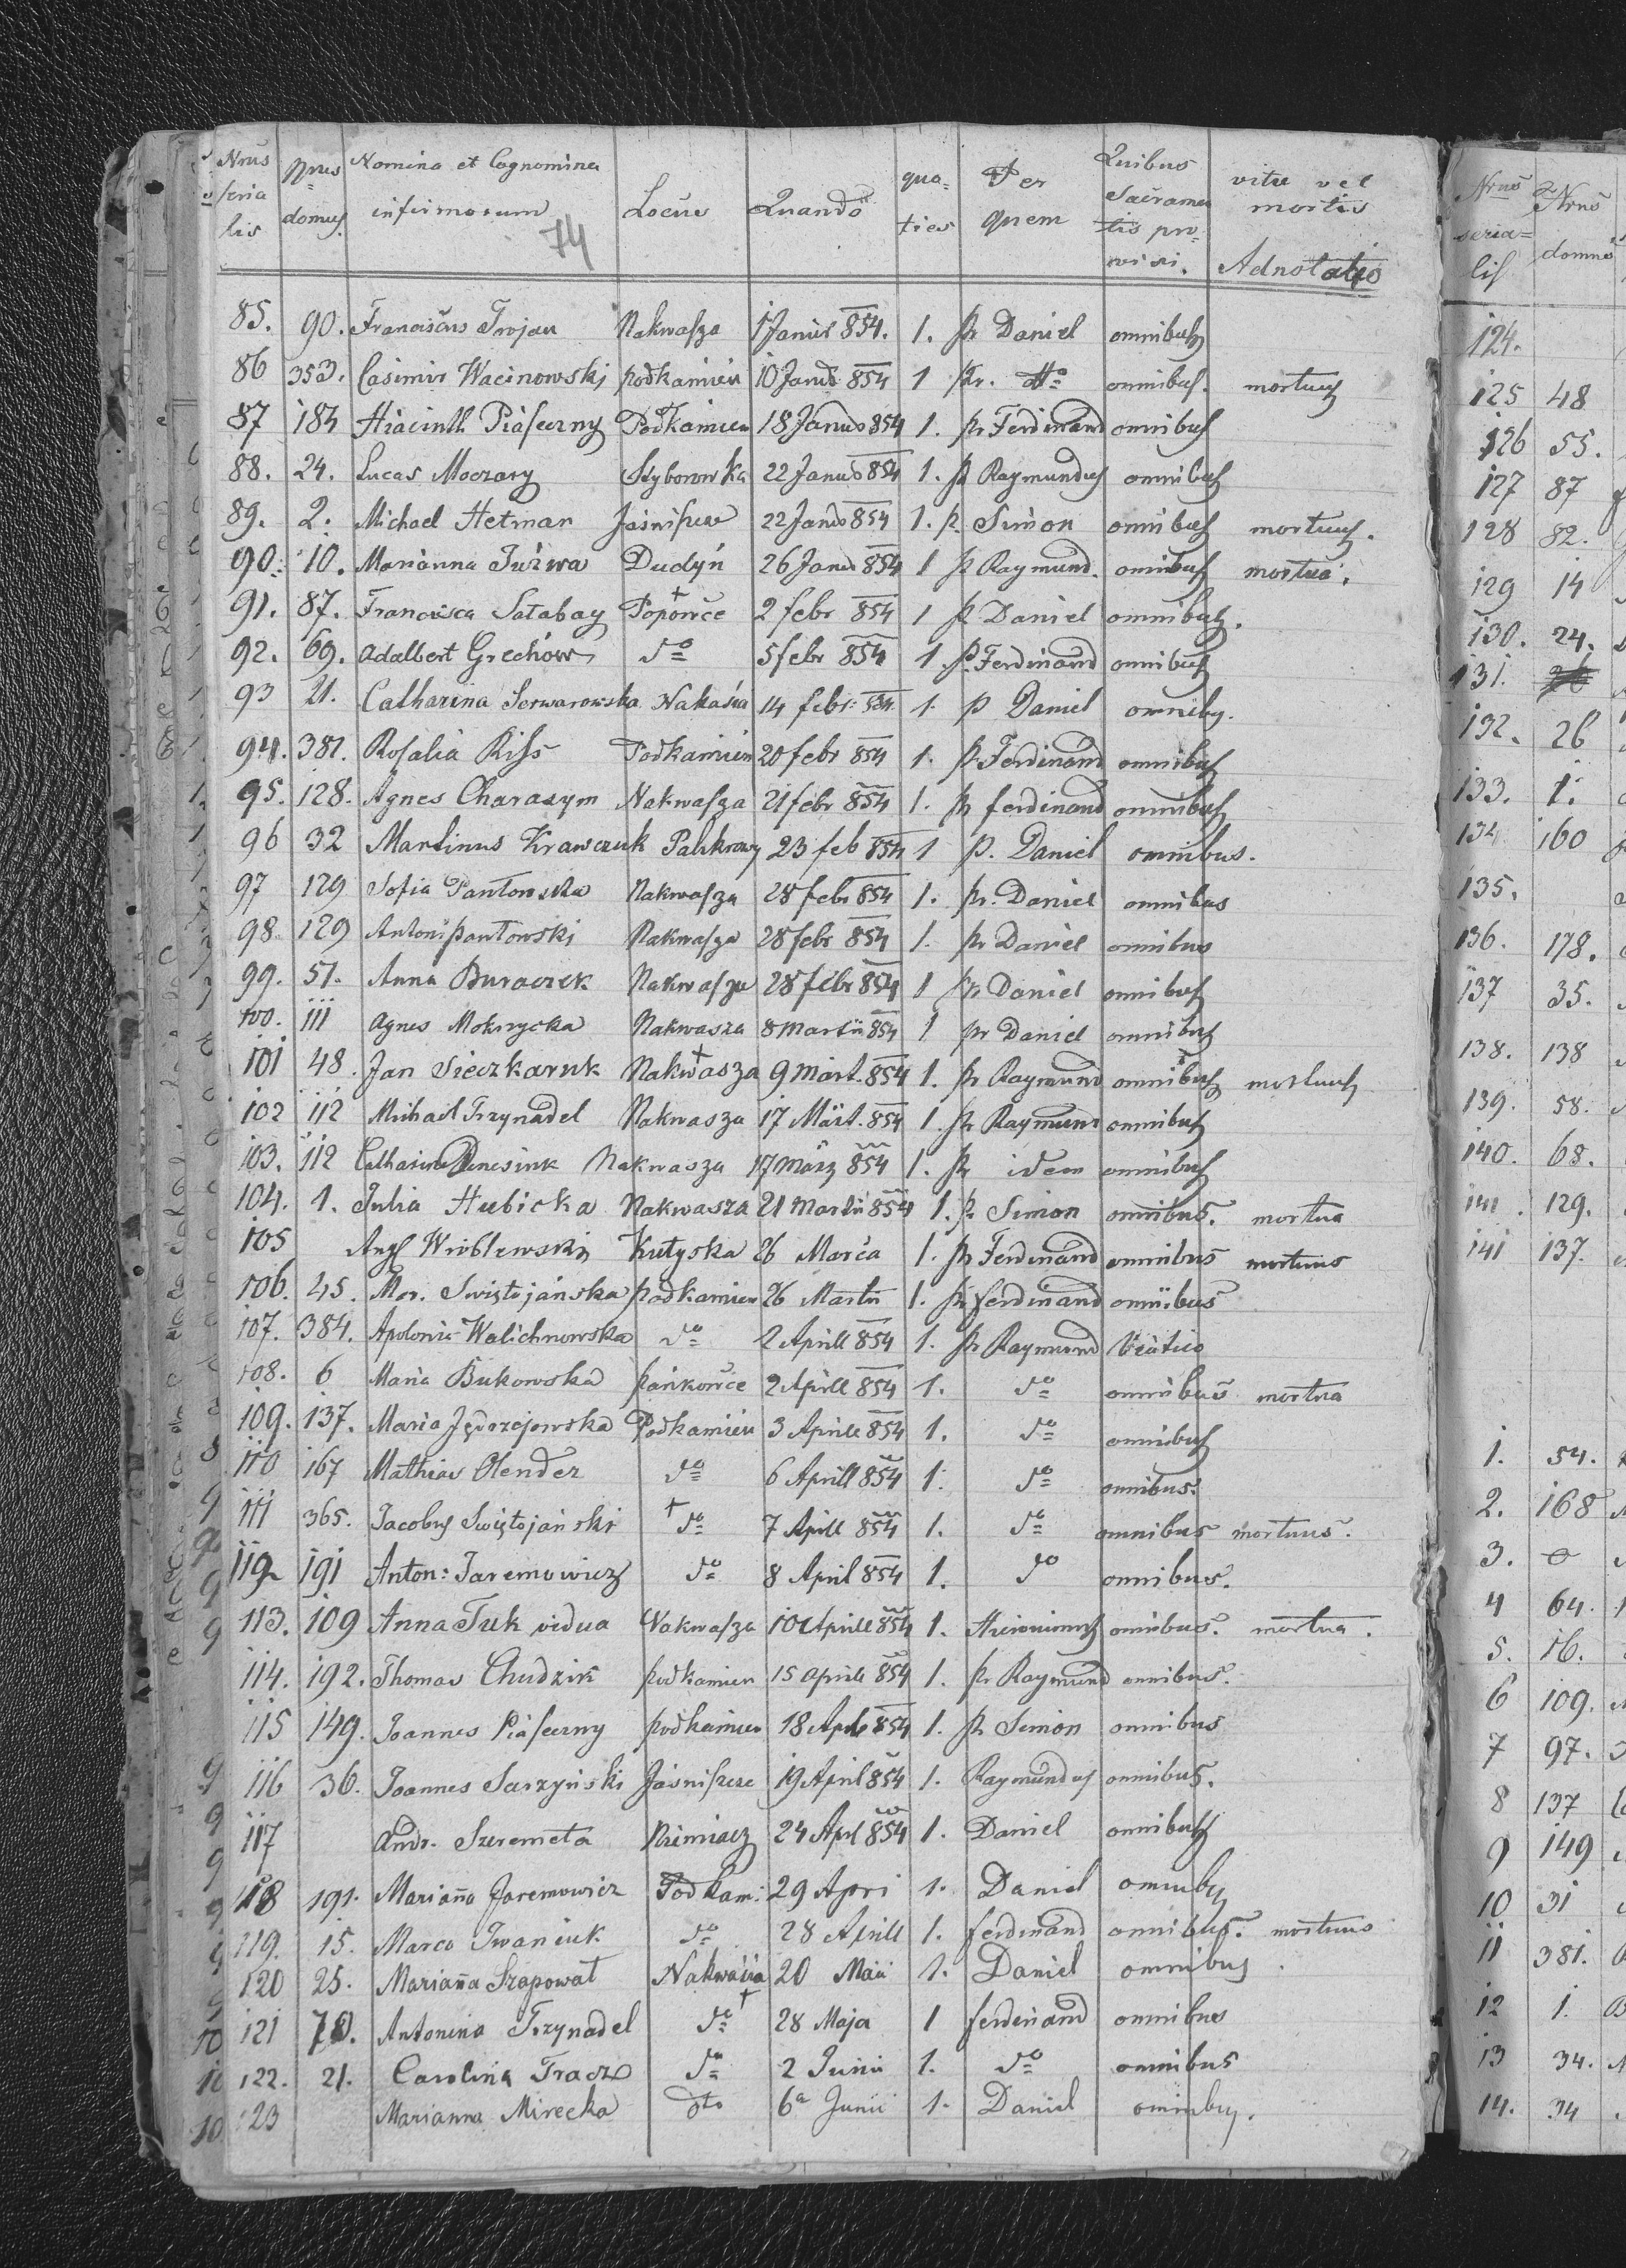 Nrus serialis Nrus domus Nomina et Cognomina infirmorum Locus Quando quoties Per quem Quibus Sacramentis provisi. vitae vel mortis Adnotatio
74
85. 90. Franciscus Trojan Nakwasza 1 Januar 854. 1. pr Daniel omnibus
86 353. Casimir Wacinowski podkamień 10 Janu 854 1 pr. dto omnibus. mortuus
87 184 Hiacinth Piaseczny Podkamien 18 Janu 854 1. pr Ferdinand omnibus
88. 24. Lucas Moczary 22 Janu 854 1. p Raymundus omnibus
89. 2. Michael Hetman Jasniszcze 22 Janu 854 1. p. Simon omnibus mortuus.
90. 10. Marianna Tuzwa Dudyń 26 Janu 854 1 p Raymund. omnibus mortua.
91. 87. Francisca Satabay Popowce 2 febr 854 1 p Daniel omnibus.
92. 69. Adalbert Grechów do 5 febr 854 1. p. Ferdinand omnibus
93 21. Catharina Serwarowska Nakwasia 14 febr: 854 1. p Daniel omnibus.
94. 381. Rosalia Kiss Podkamien 20 febr 854 1. p. Ferdinand omnibus
95. 128. Agnes Charasym Nakwasza 21 febr 854 1. pr ferdinand omnibus
96 32 Martinus Krawczuk 23 feb 854 1 p. Daniel omnibus.
97 129 Sofia Pantowska Nakwasza 28 febr 854 1. pr. Daniel omnibus
98. 129 Antoni pantowski Nakwasza 28 febr 854 1. pr Daniel omnibus
99. 51. Anna Buraczek Nakwasza 28 febr 854 1 pr Daniel omnibus
100. 111 Agnes Mokrzycka Nakwasza 8 Martii 854 1 pr Daniel omnibus
101 48. Jan Sieczkaruk Nakwasza 9 Mart. 854 1. pr Raymund omnibus mortuus
102 112 Michael Trzynadel Nakwasza 17 Märt. 854 1. pr Raymund omnibus
103. 112 Catharina Denesiuk Nakwasza 17 März 854 1. pr idem omnibus
104. 1. Julia Hubicka Nakwasza 21 Martii 854 1. p. Simon omnibus. mortua
105 Wróblewski Kutyska 26 Marca 1. pr Ferdinand omnibus mortuus
106. 45. Mar. Swiętojánska podkamien 26 Martii 1. pr ferdinand omnibus
107. 384. Apolonia Walichnowska do 2 Aprill 854 1. pr Raymund Viatico
108. 6 Maria Bukowska pańkowce 2 Aprill 854 1. do omnibus mortua
109. 137. Maria Jędrzejowska Podkamień 3 Aprill 854 1. do omnibus
110 167 Mathias Olender do 6 Aprill 854 1. do omnibus.
111 365. Jacobus Swiętojański do 7 Aprill 854 1. do omnibus mortuus.
112 191 Anton: Jaremowicz do 8 April 854 1. do omnibus.
113. 109 Anna Tuk vidua Nakwasza 10 Aprill 854 1. Hieronimus omnibus. mortua.
114. 192. Thomas Chudzik podkamien 15 Aprill 854 1. pr Raymund omnibus.
115 149. Joannes Piaseczny podkamien 18 Apr 854 1. pr Simon omnibus
116 36. Joannes Sarzyński Jasniszcze 19 April 854 1. Raymundus omnibus.
117 Andr. Szeremeta Niemiacz 24 Aprl 854 1. Daniel omnibus
118 191. Marianna Jaremowicz Podkam: 29 Apri 1. Daniel omnibus
119. 15. Marco Iwaniuk do 28 Aprill 1. ferdinand omnibus. mortuus
120 25. Marianna Szapował Nakwasia 20 Maii 1. Daniel omnibus.
121 70. Antonina Trzynadel do 28 Maja 1 ferdinand omnibus
122. 21. Carolina Tracz do 2 Junii 1. do omnibus
123 Marianna Mirecka dto 6a Junii 1. Daniel omnibus.
Nrus serialis Nrus domus
124.
125 48
126 55.
127 87
128 82.
129 14
130. 24.
131.
132. 26
133. 1.
134 160
135.
136. 178.
137 35.
138. 138
139. 58.
140. 68.
141. 129.
141 137.
1. 54.
2. 168
3.
4 64.
5. 16.
6 109.
7 97.
8 137
9 149
10 31
11 381.
12 1.
13 34.
14. 34